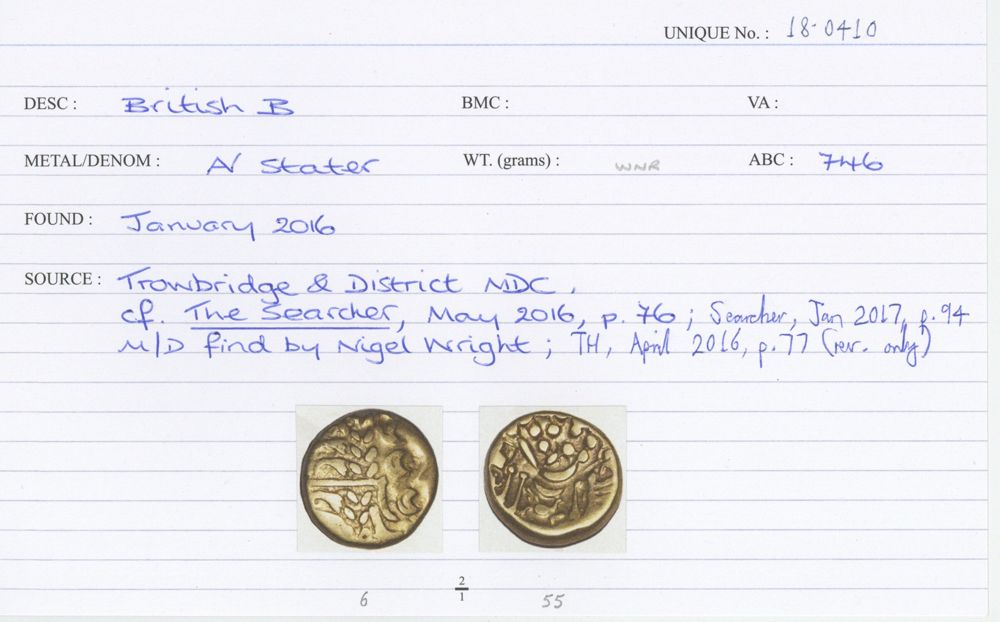 UNIQUE No. : 18-0410
DESC : British B BMC : VA :
METAL/DENOM : A/ Stater WT. (grams) : WNR ABC : 746
FOUND : January 2016
SOURCE : Trowbridge & District MDC,
cf. The Searcher, May 2016, p. 76 ; Searcher, Jan 2017, p. 94
M/D find by Nigel Wright ; TH, April 2016, p. 77 (rev. only)
2
1
6 55